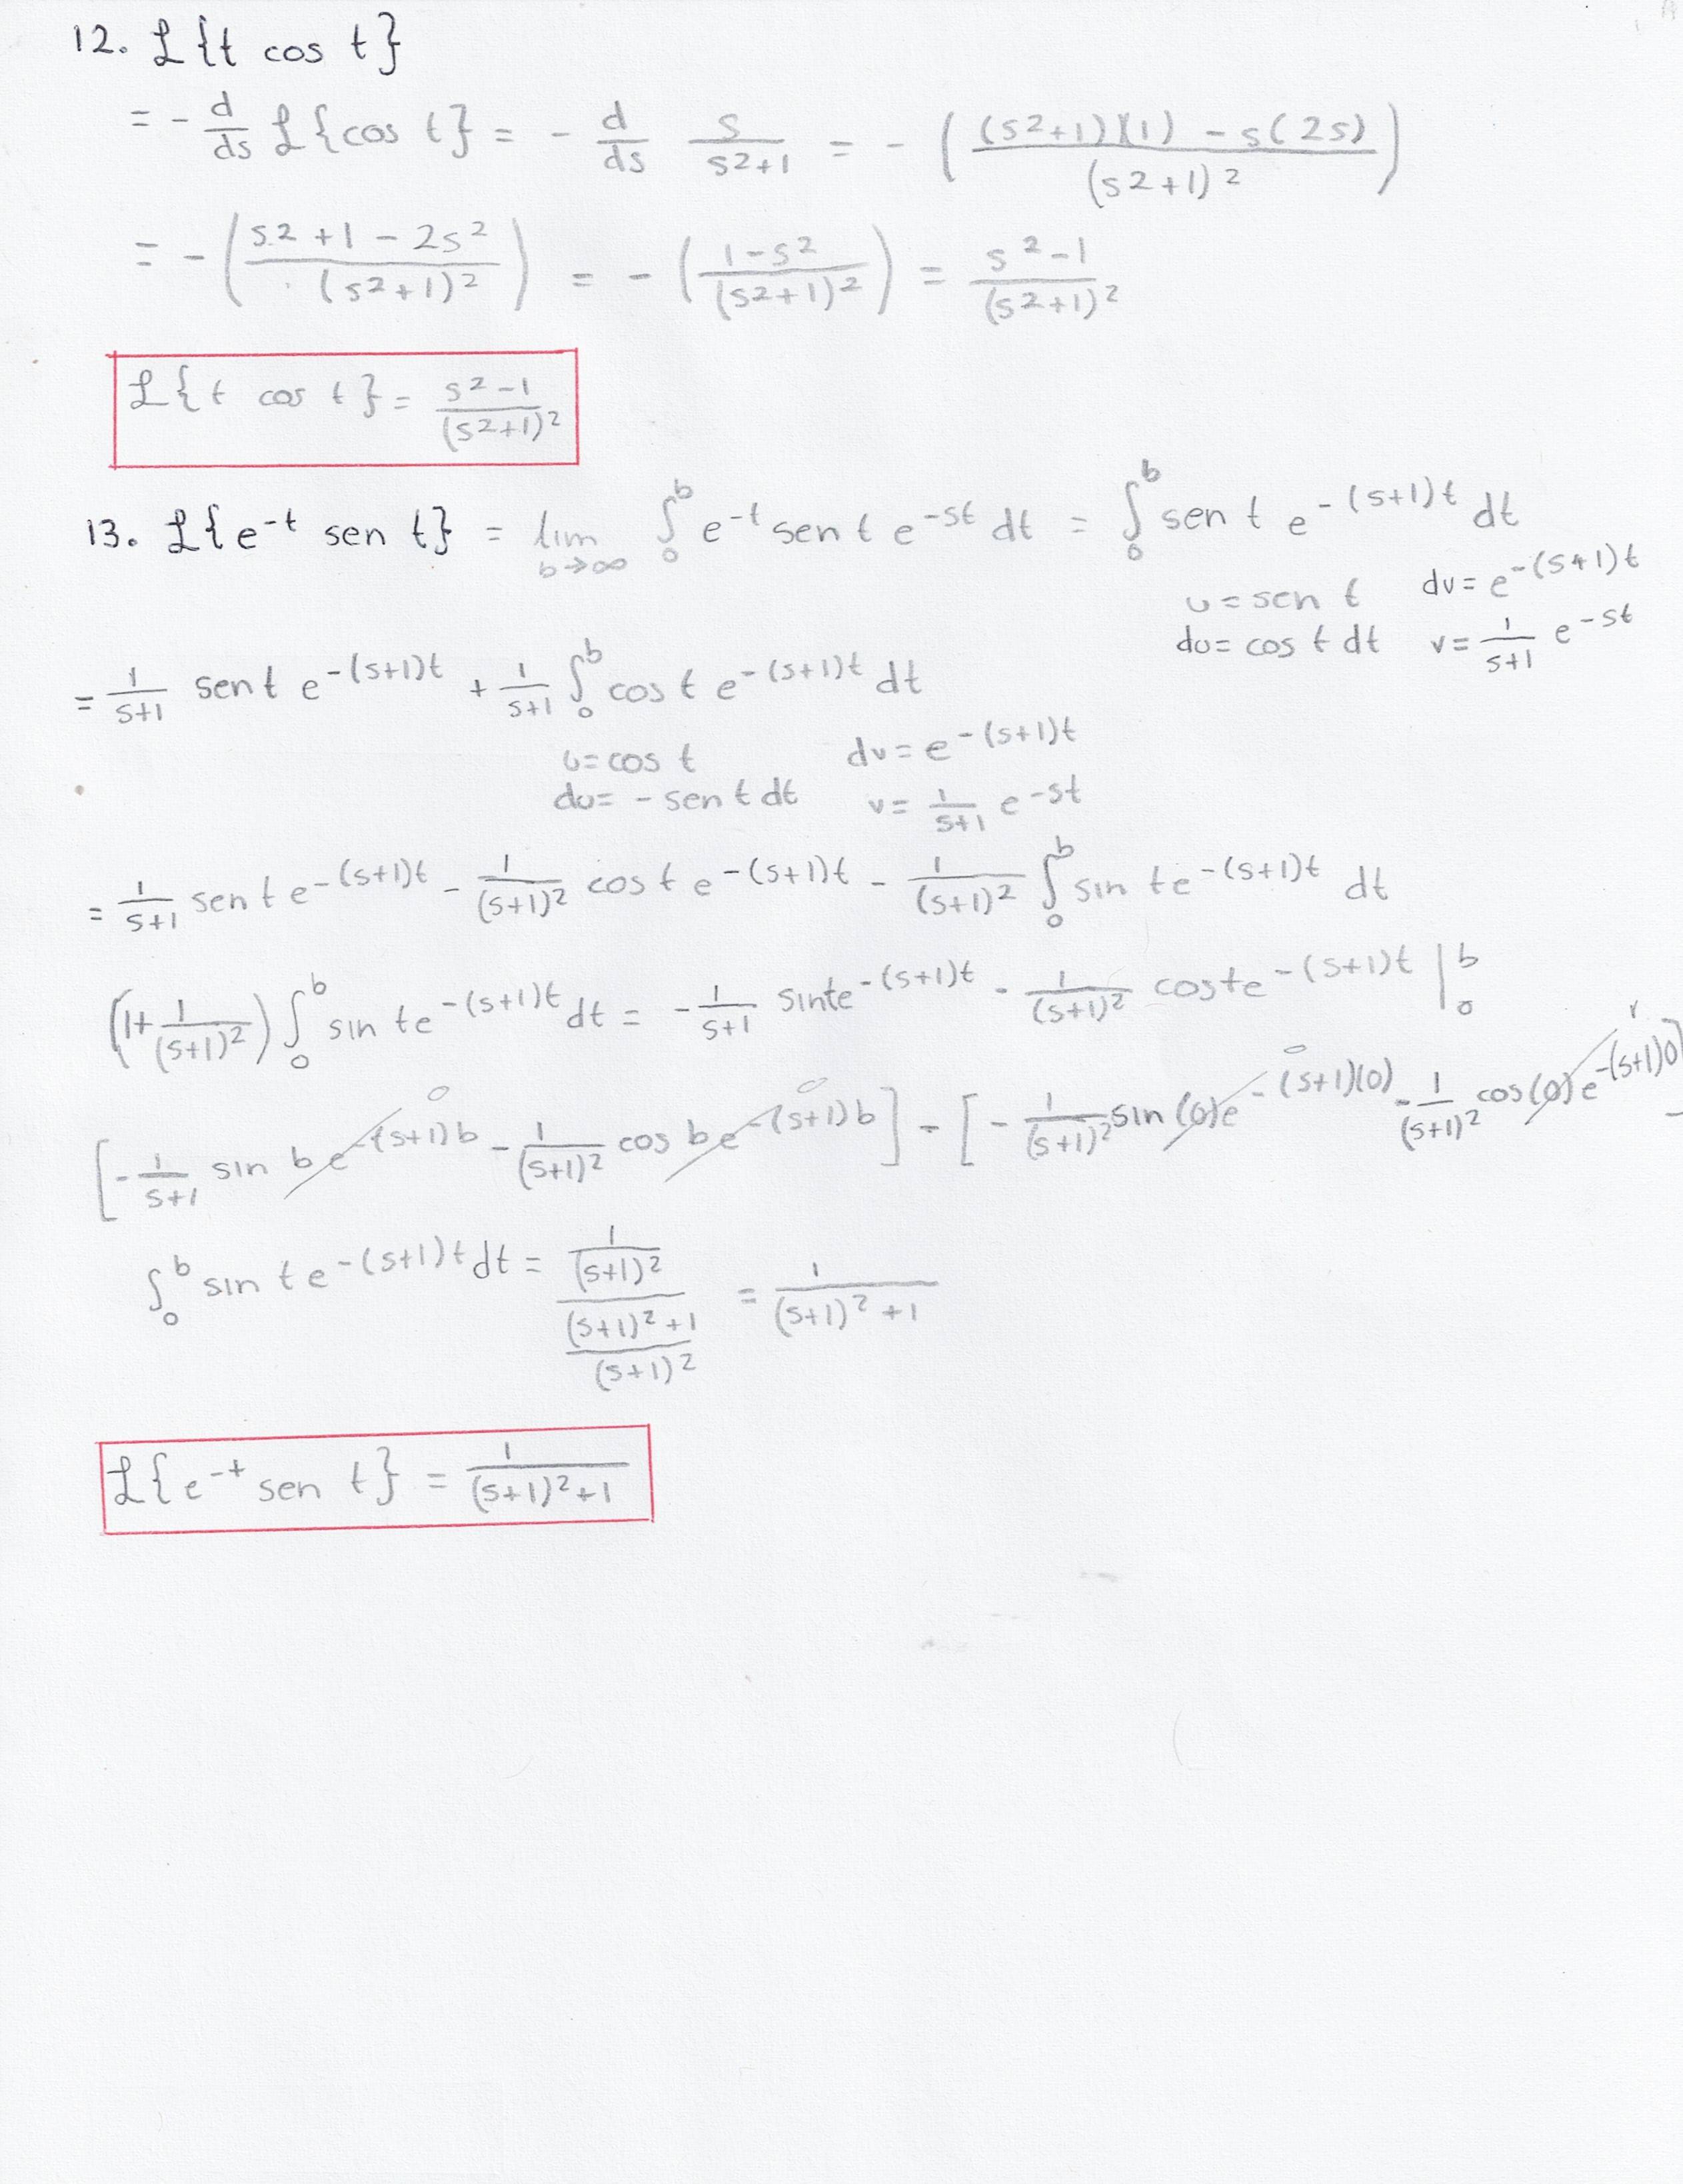 12. ℒ{t cos t}
= - d/ds ℒ{cos t} = - d/ds s/(s²+1) = - ( ((s²+1)(1) - s(2s)) / (s²+1)² )
= - ( (s²+1-2s²) / (s²+1)² ) = - ( (1-s²) / (s²+1)² ) = (s²-1) / (s²+1)²
ℒ{t cos t} = (s²-1) / (s²+1)²
13. ℒ{e^-t sen t} = lim b→∞ ∫₀^b e^-t sen t e^-st dt = ∫₀^b sen t e^-(s+1)t dt
u = sen t dv = e^-(s+1)t
du = cos t dt v = 1/(s+1) e^-st
= 1/(s+1) sen t e^-(s+1)t + 1/(s+1) ∫₀^b cos t e^-(s+1)t dt
u = cos t dv = e^-(s+1)t
du = - sen t dt v = 1/(s+1) e^-st
= 1/(s+1) sen t e^-(s+1)t - 1/(s+1)² cos t e^-(s+1)t - 1/(s+1)² ∫₀^b sin t e^-(s+1)t dt
(1 + 1/(s+1)²) ∫₀^b sin t e^-(s+1)t dt = - 1/(s+1) sin t e^-(s+1)t - 1/(s+1)² cos t e^-(s+1)t |₀^b
[ - 1/(s+1) sin b e^-(s+1)b 0 - 1/(s+1)² cos b e^-(s+1)b 0 ] - [ - 1/(s+1)² sin (0) e^-(s+1)(0) 0 - 1/(s+1)² cos (0) e^-(s+1)0 1 ]
∫₀^b sin t e^-(s+1)t dt = (1/(s+1)²) / (((s+1)²+1)/(s+1)²) = 1/((s+1)²+1)
ℒ{e^-t sen t} = 1/((s+1)²+1)